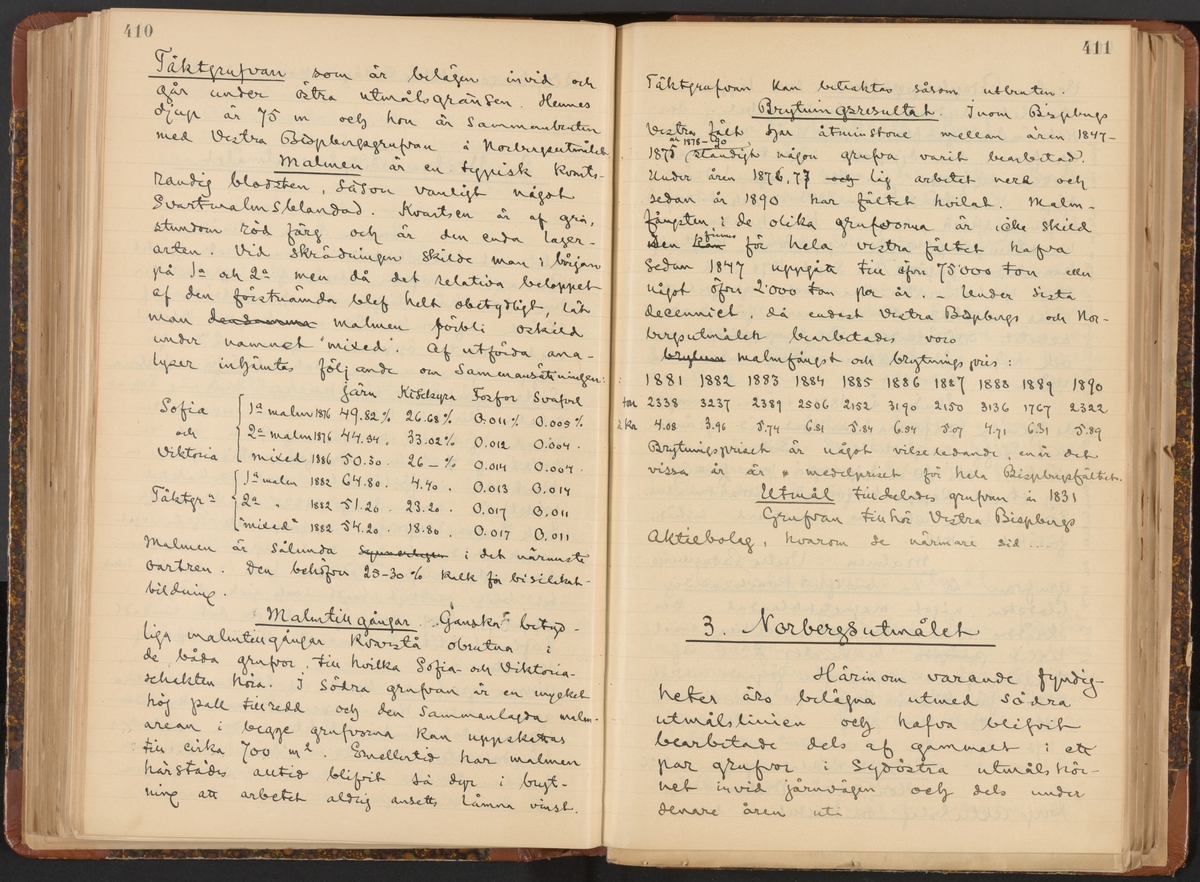 410
Täktgrufvan som är belägen invid och
går under östra utmålsgränsen. Hennes
djup är 75 m och hon är sammanbruten
med Vestra Bispbergsgrufvan å Norbergsutmålet.
Malmen är en typisk kvarts-
randig blodsten, såsom vanligt något
Svartmalmsblandad. Kvartsen är af grå,
stundom röd färg och är den enda lager-
arten. Vid skrädningen skilde man i början
på 1a och 2a men då det relativa beloppet
af den förstnämda blef helt obetydligt, lät
man densamma malmen förbli oskild
under namnet "mixed". Af utförda ana-
lyser inhämtas följande om sammansättningen:
Järn Kiselsyra Fosfor Svafvel
Sofia och Viktoria
1a malm 1876 49.82% 26.68% 0.011% 0.005%
2a malm 1876 44.54. 33.02% 0.012 0.004.
mixed 1886 50.30. 26 – % 0.014 0.004.
Täktgr n
1a malm 1882 64.80. 4.40. 0.013 0.014
2a " 1882 51.20. 23.20. 0.017 0.011
"mixed" 1882 54.20. 18.80. 0.017 0.011
Malmen är sålunda i det närmaste
torrsten. Den behöfver 25-30% kalk för bisilikat-
bildning.
Malmtillgångar. Ganska betyd-
liga malmtillgångar kvarstå obrutna i
de båda grufvor, till hvilka Sofia- och Viktoria-
schakten höra. I Södra grufvan är en mycket
hög pall tillredd och den sammanlagda malm-
arean i begge grufvorna kan uppskattas
till cirka 700 m2. Emellertid har malmen
härstädes alltid blifvit så dyr i bryt-
ning att arbetet aldrig ansetts lämna vinst.
411
Täktgrufvan kan betraktas såsom utbruten.
Brytningsresultat. Inom Bispbergs
Vestra fält har åtminstone mellan åren 1847-
1875 ständigt någon grufva varit bearbetad.
är 1878-90
Under åren 1876, 77 och låg arbetet nere och
sedan år 1890 har fältet hvilat. Malm-
fångsten i de olika grufvorna är icke skild
men kan för hela vestra fältet hafva
finnes
sedan 1847 uppgått till öfver 75000 ton eller
något öfver 2000 ton per år. – Under sista
decenniet, då endast Vestra Bispbergs och Nor-
bergsutmålet bearbetades voro
malmfångst och brytningspris:
1881 1882 1883 1884 1885 1886 1887 1888 1889 1890
ton 2338 3237 2389 2506 2152 3190 2150 3136 1767 2322
à kr 4.08 3.96 5.74 6.51 5.84 6.54 5.07 4.71 6.31 5.89
Brytningspriset är något vilseledande, enär det
vissa år är medelpriset för hela Bispbergsfältet.
Utmål tilldelades grufvan år 1831
Grufvan tillhör Vestra Bispbergs
Aktiebolag, hvarom se närmare sid....
3. Norbergsutmålet
Härinom varande fyndig-
heter äro belägna utmed södra
utmålslinien och hafva blifvit
bearbetade dels af gammalt i ett
par grufvor i Sydöstra utmålshör-
net invid järnvägen och dels under
senare åren uti